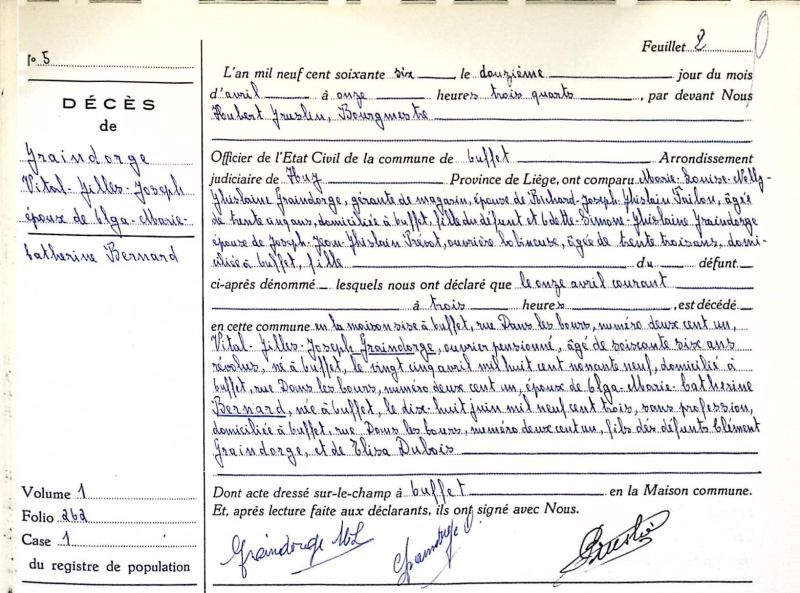 Feuillet 2
N° 5
DÉCÈS
de
Graindorge
Vital-Gilles-Joseph
époux de Olga-Marie-
Catherine Bernard
Volume 1
Folio 262
Case 1
du registre de population
L'an mil neuf cent soixante six le douzième jour du mois
d'avril à onze heures trois quarts, par devant Nous
Hubert, Bourgmestre
Officier de l'Etat Civil de la commune de Ouffet Arrondissement
judiciaire de Huy Province de Liège, ont comparu Marie-Louise-Nelly-
Ghislaine Graindorge, gérante de magasin, épouse de Joseph Ghislain, âgée
de trente ans, domiciliée à Ouffet, fille du défunt et Odette-Simon-Ghislaine Graindorge
épouse de Joseph-Jean-Ghislain Prévot, ouvrière bobineuse, âgée de trente trois ans, domi-
ciliée à Ouffet, fille du défunt
ci-après dénommé lesquels nous ont déclaré que le onze avril courant
à trois heures, est décédé
en cette commune en la maison sise à Ouffet, rue Dans les bours, numéro deux cent un,
Vital-Gilles-Joseph Graindorge, ouvrier pensionné, âgé de soixante six ans
révolus, né à Ouffet, le vingt cinq avril mil huit cent nonante neuf, domicilié à
Ouffet, rue Dans les bours, numéro deux cent un, époux de Olga-Marie-Catherine
Bernard, née à Ouffet, le dix-huit juin mil neuf cent trois, sans profession,
domiciliée à Ouffet, rue Dans les bours, numéro deux cent un, fils des défunts Clément
Graindorge, et de Elisa Dubois
Dont acte dressé sur-le-champ à Ouffet en la Maison commune.
Et, après lecture faite aux déclarants, ils ont signé avec Nous.
Graindorge ML Graindorge O.